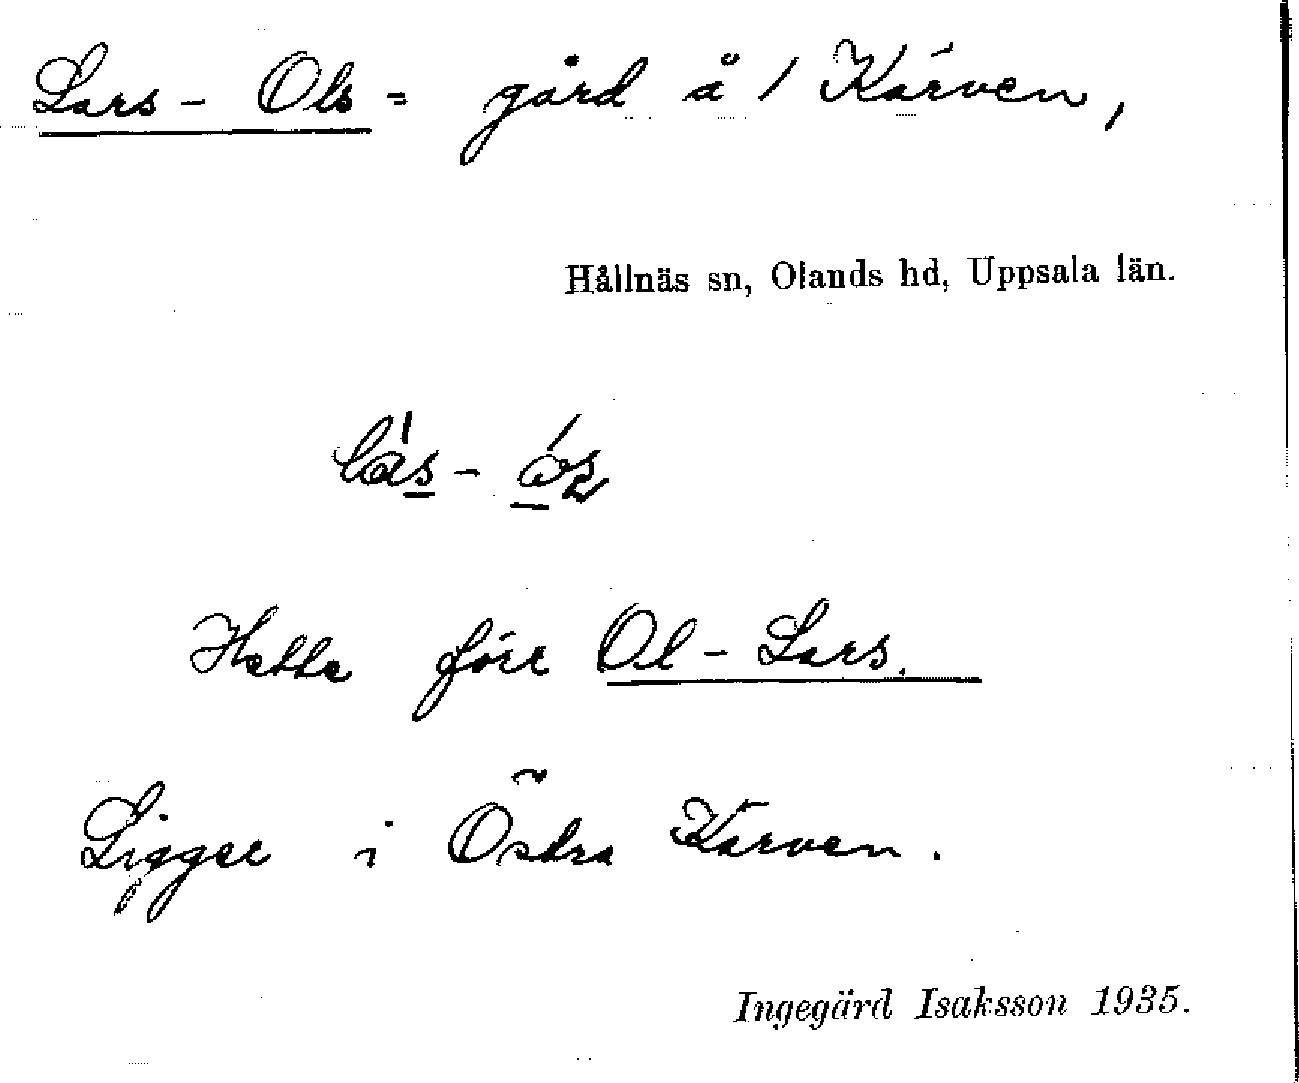 Lars-Ols = gård å 1 Kärven,
Hållnäs sn, Olands hd, Uppsala län.
Hette förr Ol-Lars.
Ligger i Östra Kärven.
Ingegärd Isaksson 1935.